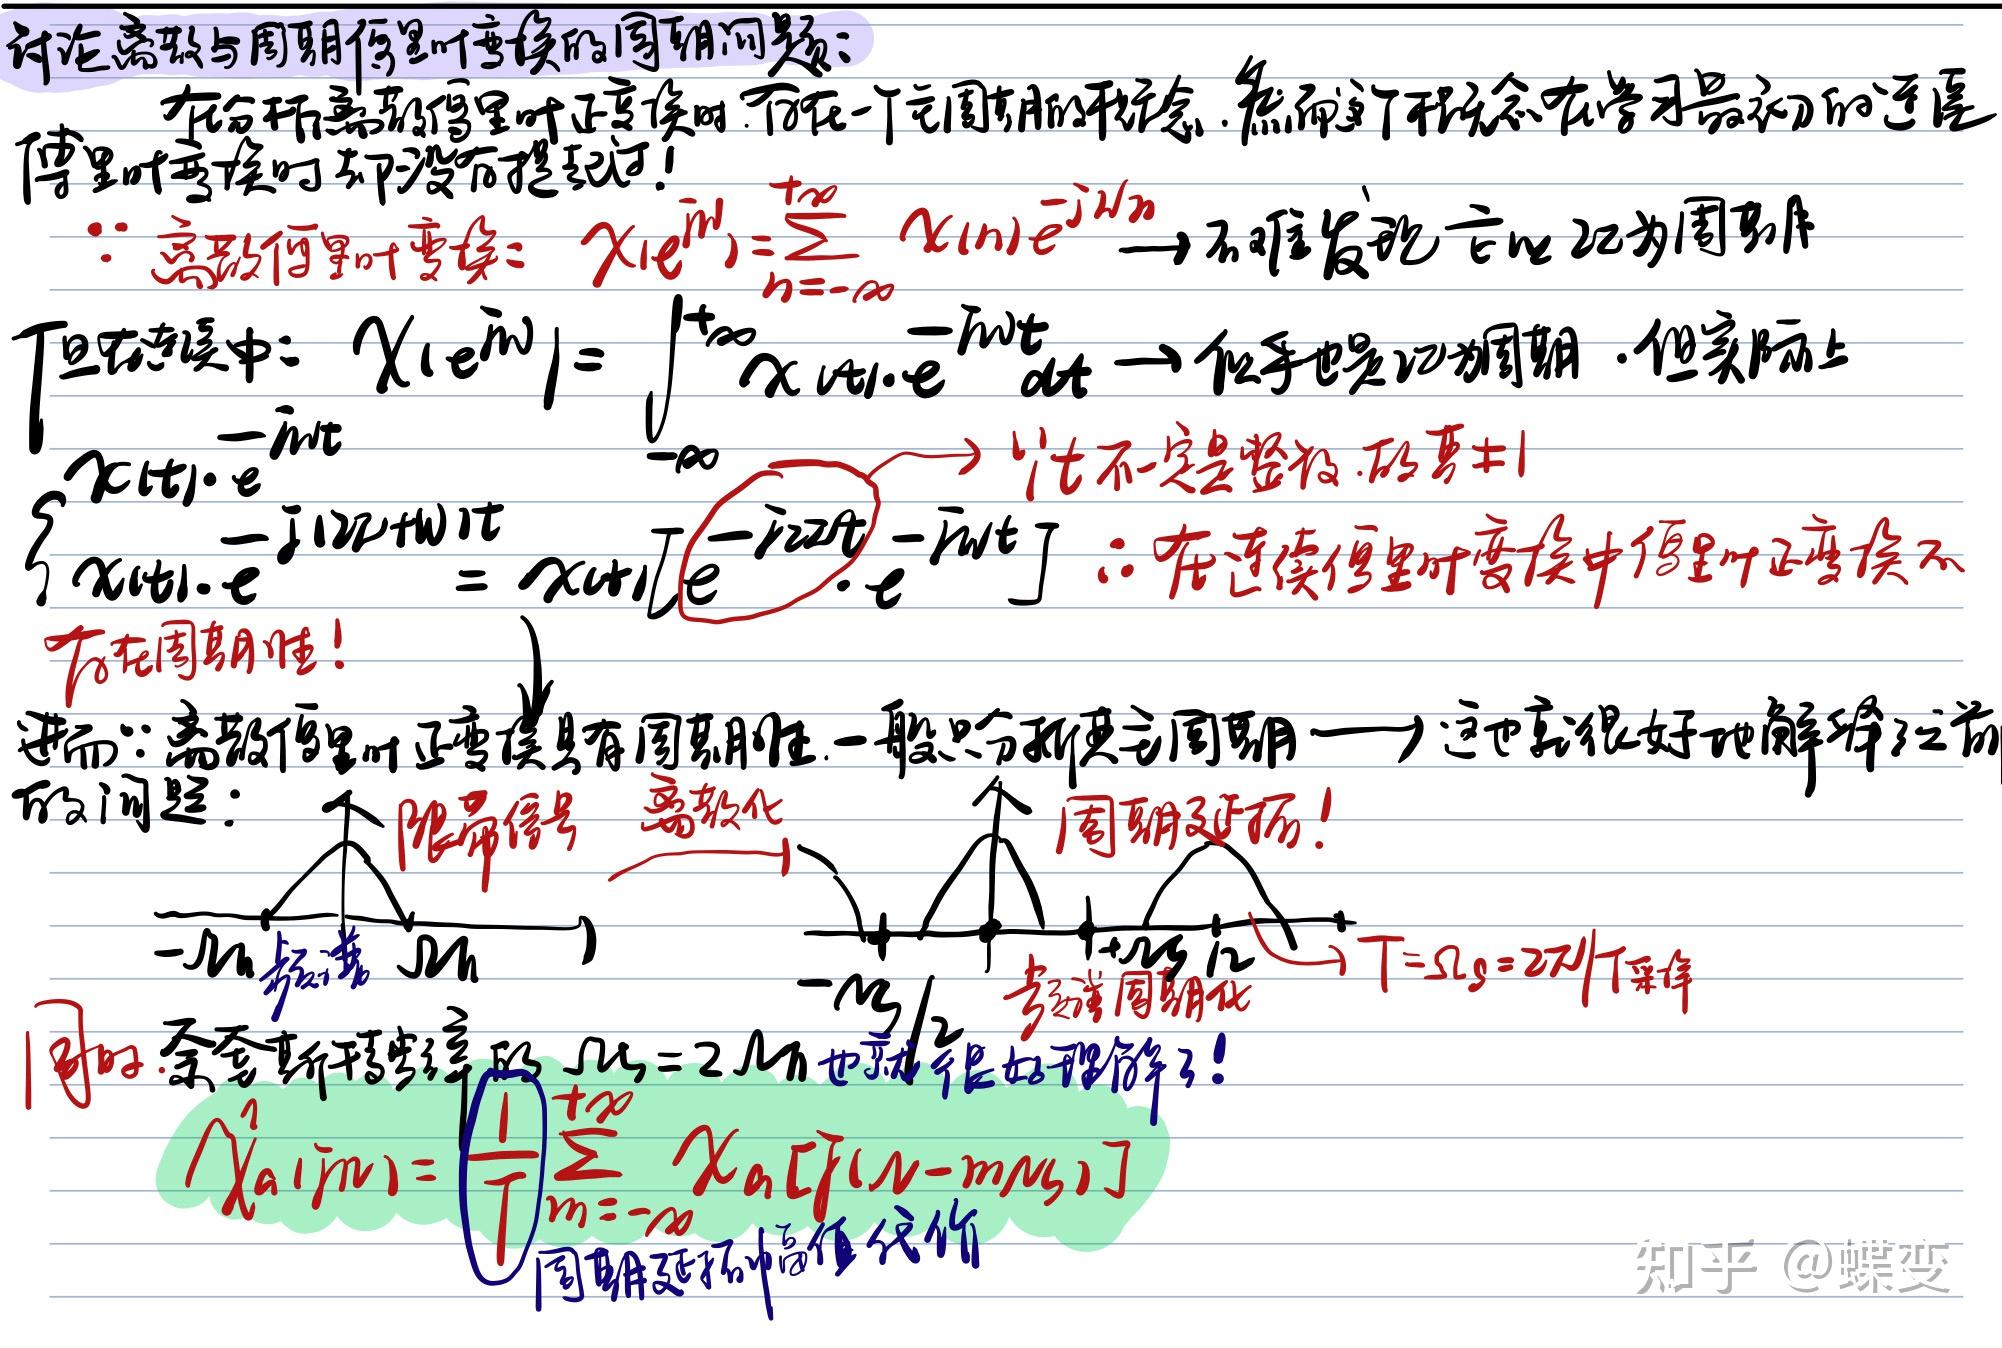 讨论离散与周期傅里叶变换的周期问题：
在分析离散傅里叶正变换时，存在一个主周期的概念，然而这个概念在学习最初的连续
傅里叶变换时却没有提起过！
∵离散傅里叶变换：X(e^{jw})=∑_{n=-∞}^{+∞} x(n)e^{-jwn} → 不难发现它以2π为周期
但在连续中：X(e^{jw})=∫_{-∞}^{+∞} x(t)·e^{-jwt}dt → 似乎也是2π为周期，但实际上
x(t)·e^{-jwt}
x(t)·e^{-j(2π+w)t} = x(t)[e^{-j2πt}·e^{-jwt}]
∵t不一定是整数，故其≠1
∴在连续傅里叶变换中傅里叶正变换不
存在周期性！
进而∵离散傅里叶正变换具有周期性，一般只分析其主周期 → 这也就很好地解释了之前
的问题：
限带信号 离散化 周期延拓！
-Ωh 频谱 Ωh
-Ωs/2 +Ωs/2
频谱周期化
→ T=Ωs=2π/T采样
同时，奈奎斯特频率的Ωs=2Ωh也就很好理解了！
X̂a(jΩ)=1/T ∑_{m=-∞}^{+∞} Xa[j(Ω-mΩs)]
周期延拓中幅值代价
知乎 @蝶变